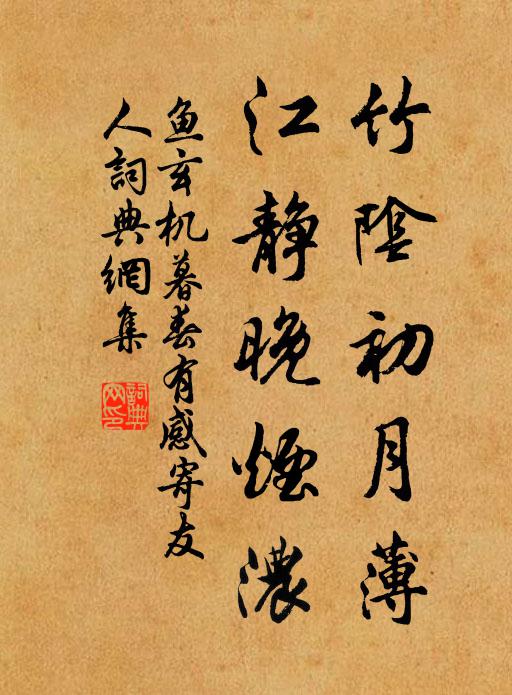 竹陰初月薄
江静晚煙濃
鱼玄机暮春有感寄友
人詞典網集
詞典
网印